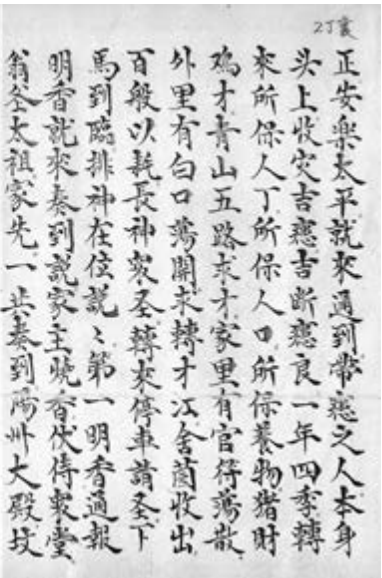 2丁裏
正安楽太平就来通到帶愿之人本身
头上收灾吉愿吉断愿良一年四季轉
來所保人丁所保人口所保養物猪財
鸡才青山五路求才家里有官符蕩散
外里有白口蕩開求轉才江舍 收出
百般以耗長神 圣轉來停車請圣下
馬到臨排神在位説〻第一明香通報
明香就來奏到説家主燒香伏侍 堂
翁 太祖家先一共奏到陽州大殿坟